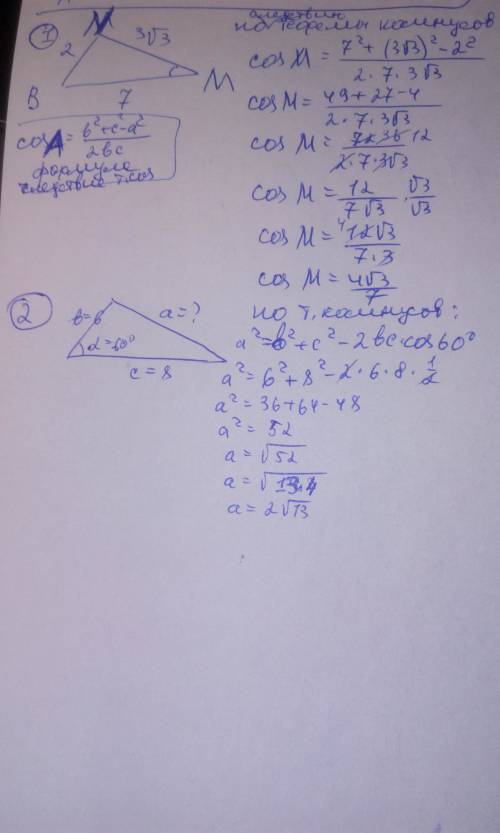 ①
N
2
3√3
M
B
7
cos A = b²+c²-a² / 2bc
формула
следствие т. cos
следствию
по теоремы косинусов
cos M = 7² + (3√3)² - 2² / 2·7·3√3
cos M = 49+27-4 / 2·7·3√3
cos M = 72 36 12 / 2·7·3√3
cos M = 12 / 7√3 · √3 / √3
cos M = 4 12√3 / 7·3
cos M = 4√3 / 7
②
b=6
a=?
α=60°
c=8
по т. косинусов:
a²=b²+c²-2bc·cos60°
a²=6²+8²-2·6·8·1/2
a²=36+64-48
a²=52
a=√52
a=√13·4
a=2√13